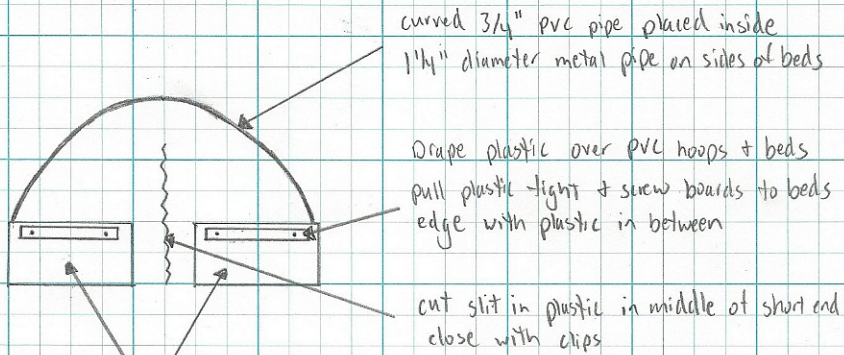 curved 3/4" pvc pipe placed inside
1 1/4" diameter metal pipe on sides of beds
Drape plastic over PVC hoops + beds
pull plastic tight + screw boards to beds
edge with plastic in between
cut slit in plastic in middle of short end
close with clips